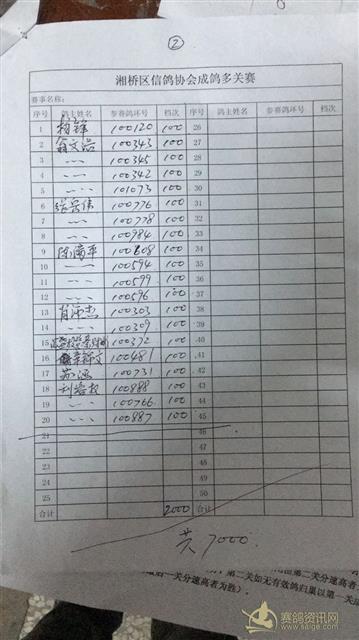 ②
湘桥区信鸽协会成鸽多关赛
赛事名称:
序号 鸽主姓名 参赛鸽环号 档次 序号 鸽主姓名 参赛鸽环号 档次
1 杨锋 100120 100 26
2 翁文浩 100343 100 27
3 〃 100345 100 28
4 〃 100342 100 29
5 〃 101073 100 30
6 张岳伟 100776 100 31
7 〃 100778 100 32
8 〃 100984 100 33
9 陈演平 100808 100 34
10 〃 100594 100 35
11 〃 100599 100 36
12 〃 100596 100 37
13 肖沛杰 100303 100 38
14 〃 100309 100 39
15 100372 100 40
16 100481 100 41
17 苏 100731 100 42
18 刘 100888 100 43
19 〃 100766 100 44
20 〃 100887 100 45
21 46
22 47
23 48
24 49
25 50
合计 2000 合计
共7000
第二关如无有效鸽归巢以第一关
最后一关分速高者为胜）。
赛鸽资讯网
www.saige.com